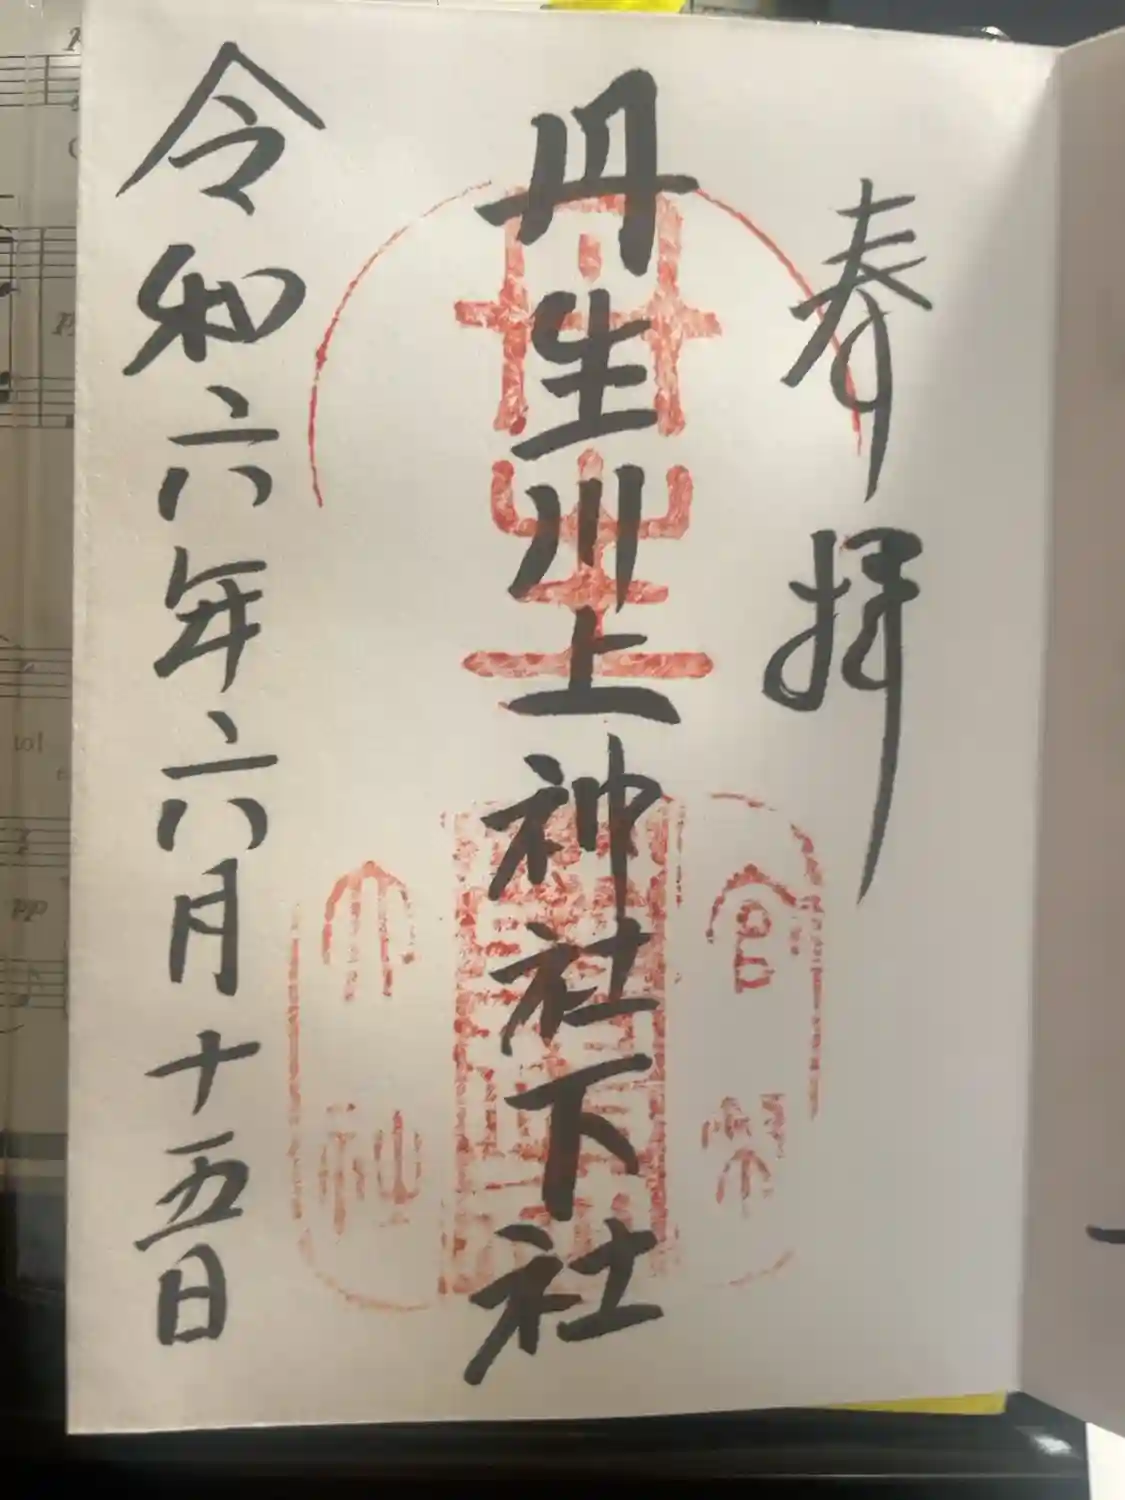 奉拝
丹生川上神社下社
令和六年六月十五日
pp